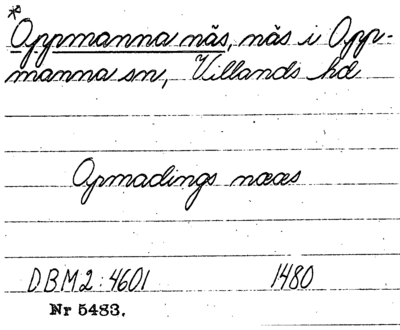 *Oppmanna näs, näs i Opp-
manna sn, Villands hd
Opmadings næas
DBM2:4601 1480
Nr 5483.